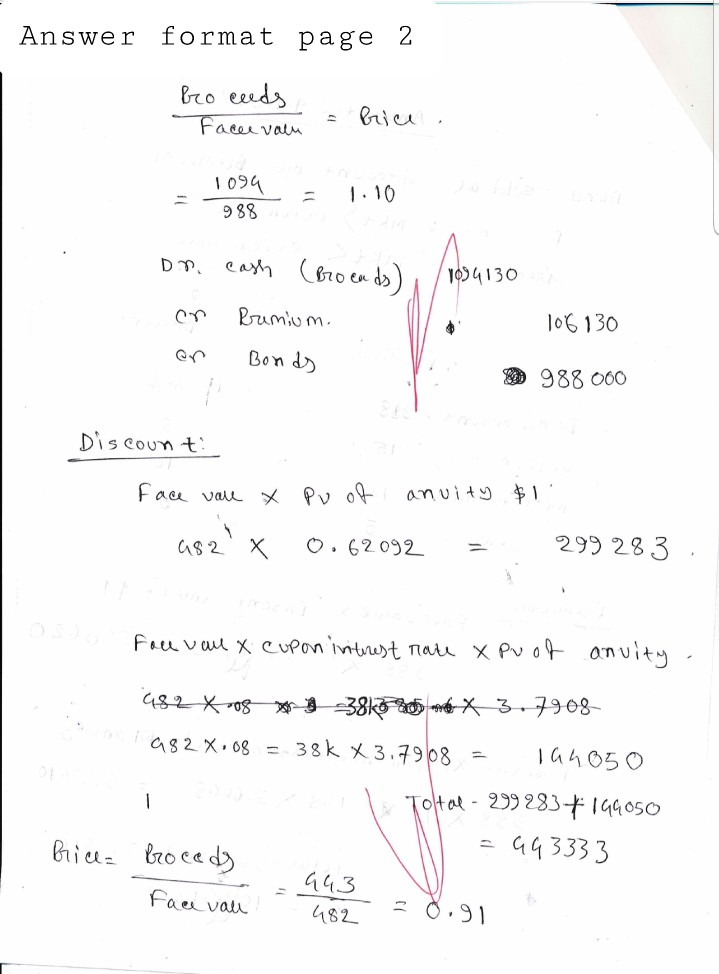 Answer format page 2
Proceeds / Face value = Price.
= 1094 / 988 = 1.10
Dr. cash (Proceeds) 1094130
cr Premium. 106130
cr Bonds 988000
Discount:
Face value X PV of anuity $1
482 X 0.62092 = 299283.
Face value X cupon intrest rate X PV of anuity.
482 X .08 X 3.7908
482 X .08 = 38k X 3.7908 = 144050
Total - 299283 + 144050
= 443333
Price = Proceeds / Face value = 443 / 482 = 0.91